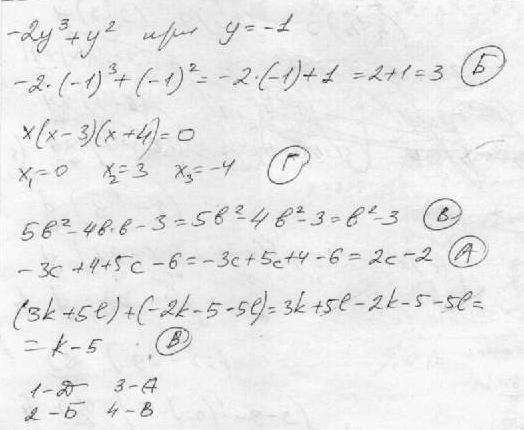 -2y³+y² при y=-1
-2·(-1)³+(-1)²=-2·(-1)+1=2+1=3 Б
x(x-3)(x+4)=0
x₁=0 x₂=3 x₃=-4 Г
5b²-4b·b-3=5b²-4b²-3=b²-3 В
-3c+4+5c-6=-3c+5c+4-6=2c-2 А
(3k+5l)+(-2k-5-5l)=3k+5l-2k-5-5l=
=k-5 В
1-Д 3-А
2-Б 4-В